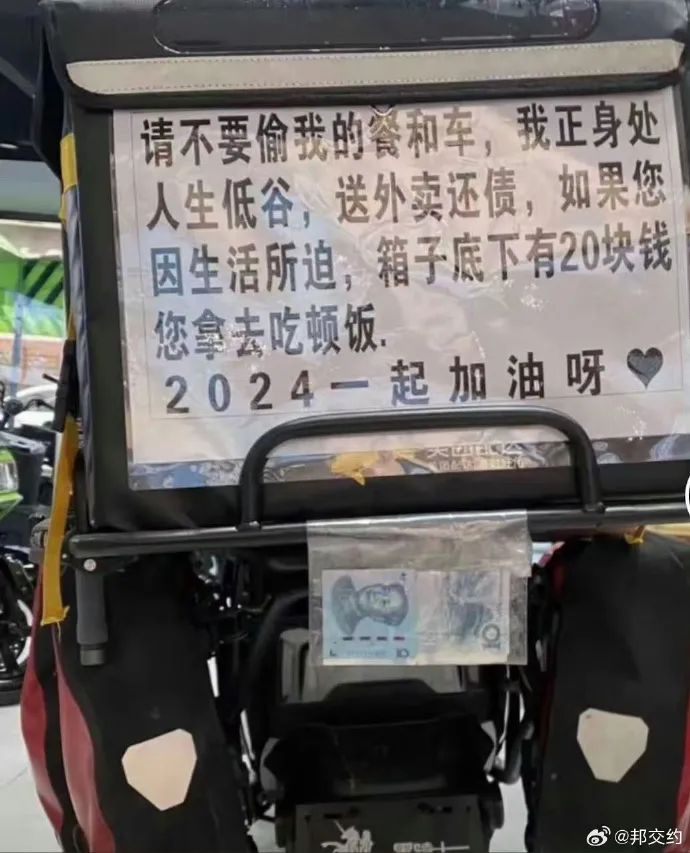 请不要偷我的餐和车，我正身处
人生低谷，送外卖还债，如果您
因生活所迫，箱子底下有20块钱
您拿去吃顿饭.
2024一起加油呀♥
10
10
@邦交约